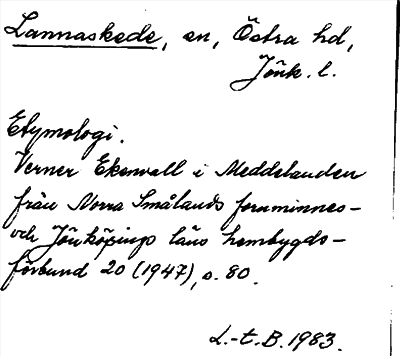 Lannaskede, sn, Östra hd,
Jönk. l.
Etymologi.
Verner Ekenvall i Meddelanden
från Norra Smålands fornminnes-
och Jönköpings läns hembygds-
förbund 20 (1947), s. 80.
L.-t. B. 1983.